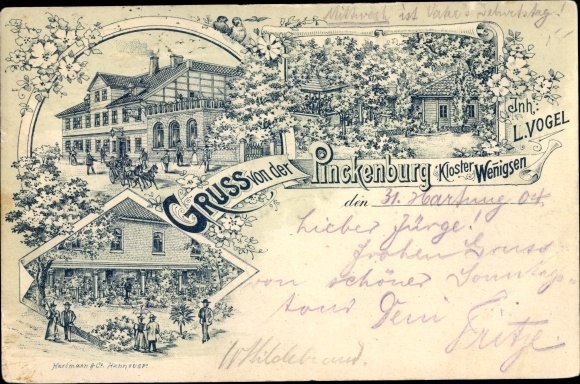 Mittwoch ist Vater's Geburtstag!!
Gruss von der Pinckenburg Kloster Wenigsen
Inh.:
L. VOGEL
den 31. Hartung 04
Lieber Jürge!
Frohen Gruss
von schöner Sonntags-
tour Dein
Fritze.
W Hildebrand.
Hartmann & Cr. Hannover.